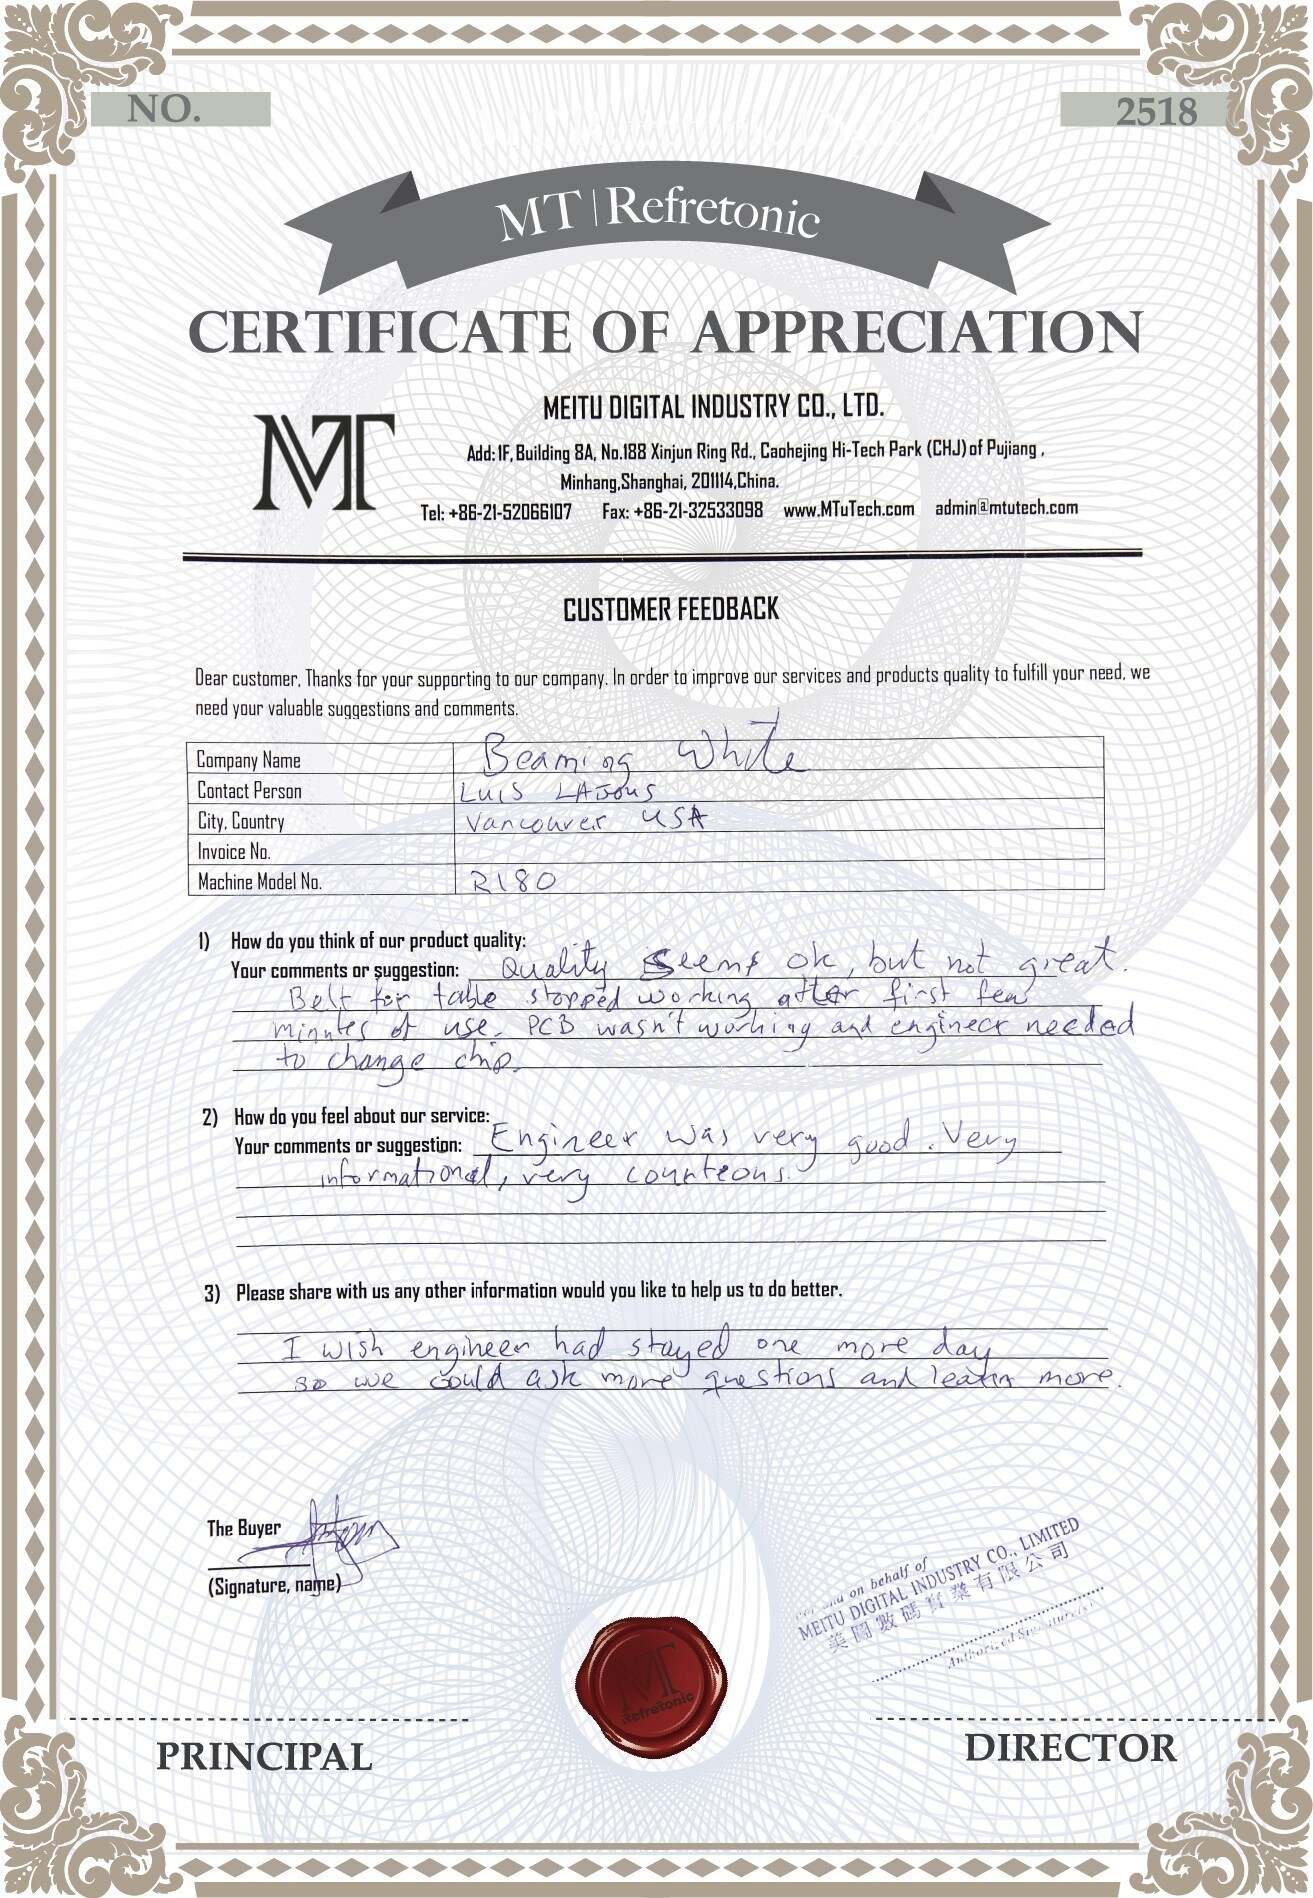 NO.
2518
MT | Refretonic
CERTIFICATE OF APPRECIATION
MT
MEITU DIGITAL INDUSTRY CO., LTD.
Add: 1F, Building 8A, No.188 Xinjun Ring Rd., Caohejing Hi-Tech Park (CHJ) of Pujiang ,
Minhang,Shanghai, 201114,China.
Tel: +86-21-52066107 Fax: +86-21-32533098 www.MTuTech.com admin@mtutech.com
CUSTOMER FEEDBACK
Dear customer, Thanks for your supporting to our company. In order to improve our services and products quality to fulfill your need, we
need your valuable suggestions and comments.
Company Name Beaming White
Contact Person Luis LAJous
City, Country Vancouver USA
Invoice No.
Machine Model No. R180
1) How do you think of our product quality:
Your comments or suggestion: Quality seems ok, but not great.
Belt for table stopped working after first few
minutes of use. PCB wasn't working and engineer needed
to change chip.
2) How do you feel about our service:
Your comments or suggestion: Engineer was very good. Very
informational, very counteous.
3) Please share with us any other information would you like to help us to do better.
I wish engineer had stayed one more day
so we could ask more questions and learn more.
The Buyer
(Signature, name)
on behalf of
MEITU DIGITAL INDUSTRY CO., LIMITED
美圖數碼實業有限公司
Authorized Signature(s)
MT
Refretonic
PRINCIPAL
DIRECTOR